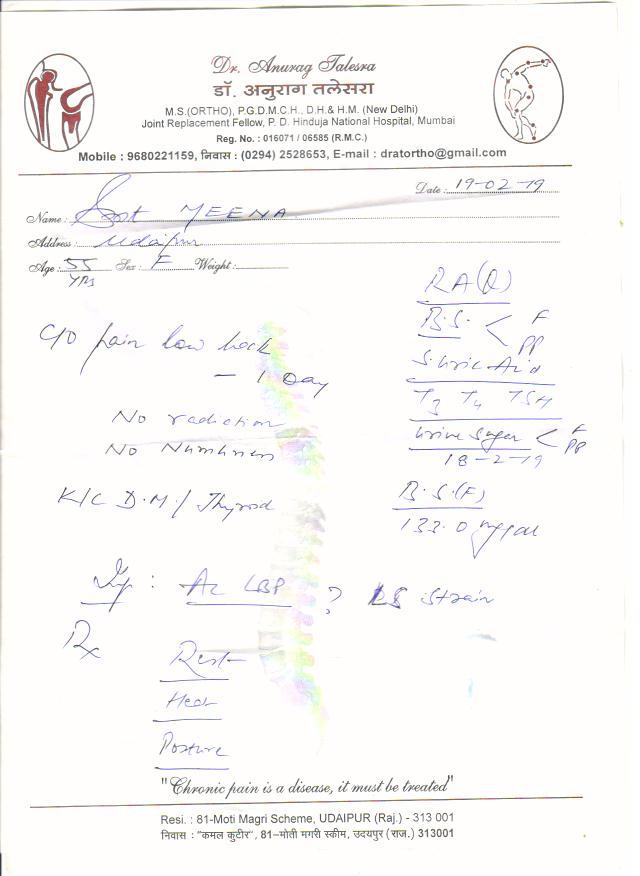 Dr. Anurag Talesra
डॉ. अनुराग तलेसरा
M.S.(ORTHO), P.G.D.M.C.H., D.H.& H.M. (New Delhi)
Joint Replacement Fellow, P. D. Hinduja National Hospital, Mumbai
Reg. No. : 016071 / 06585 (R.M.C.)
Mobile : 9680221159, निवास : (0294) 2528653, E-mail : dratortho@gmail.com
Date : 19-02-19
Name : Smt MEENA
Address : Udaipur
Age : 55 YRS Sex : F Weight :
RA(Q)
B.S. < F PP
S. Uric Acid
T3 T4 TSH
Urine Sugar < F PP
C/O pain low back
- 1 Day
No radiation
No Numbness
18-2-19
K/C D.M. / Thyroid
B.S.(F)
133.0 mg/dl
Imp : Ac LBP ? LS strain
Rx
Rest
Heat
Posture
"Chronic pain is a disease, it must be treated"
Resi. : 81-Moti Magri Scheme, UDAIPUR (Raj.) - 313 001
निवास : "कमल कुटीर", 81-मोती मगरी स्कीम, उदयपुर (राज.) 313001